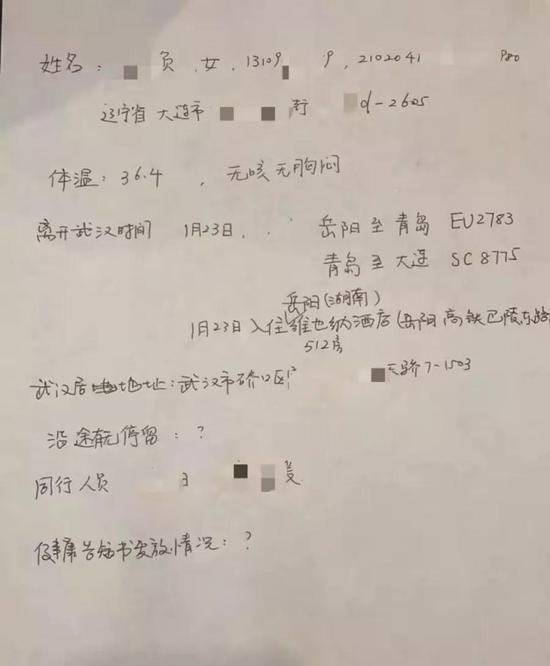 姓名： 员，女，13109 9，2102041
辽宁省 大连市 街 d-2605
体温：36.4 ，无咳 无胸闷
离开武汉时间 1月23日，. 岳阳至青岛 EU2783
青岛至大连 SC8775
岳阳(湖南)
1月23日 入住维也纳酒店(岳阳高铁巴陵东路
512房
武汉居住地址：武汉市硚口区 天骄7-1503
沿途有无停留：？
同行人员 王
健康告知书发放情况：？